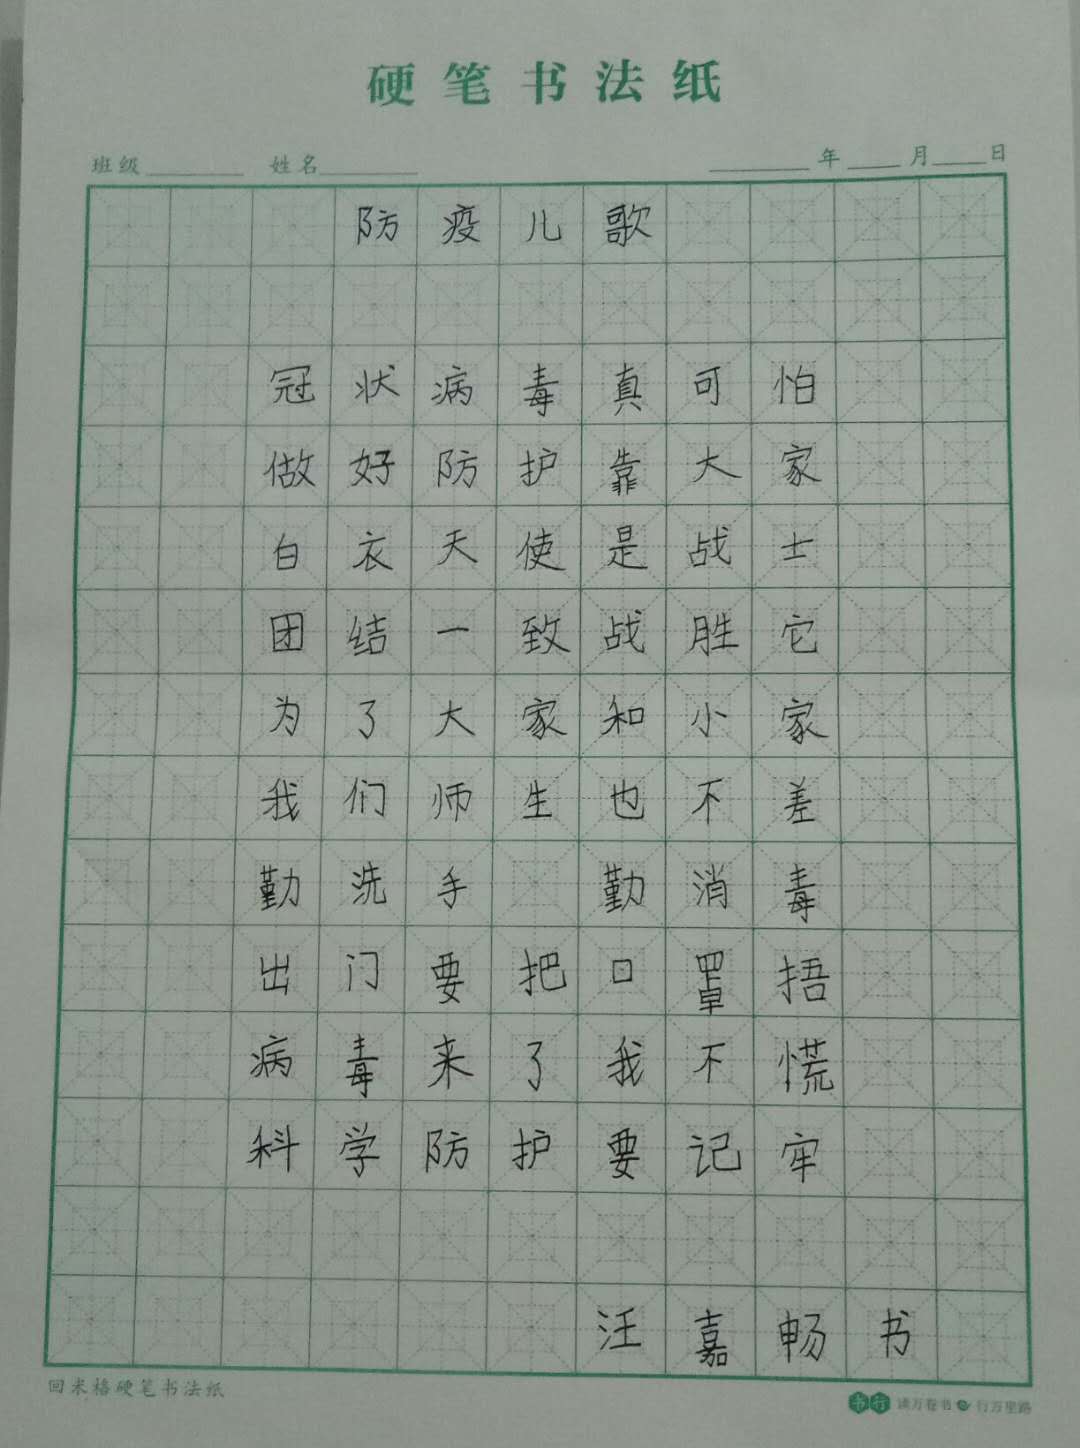 硬笔书法纸
班级 姓名 年 月 日
防疫儿歌
冠状病毒真可怕
做好防护靠大家
白衣天使是战士
团结一致战胜它
为了大家和小家
我们师生也不差
勤洗手 勤消毒
出门要把口罩捂
病毒来了我不慌
科学防护要记牢
汪嘉畅书
回米格硬笔书法纸
书行 读万卷书 行万里路